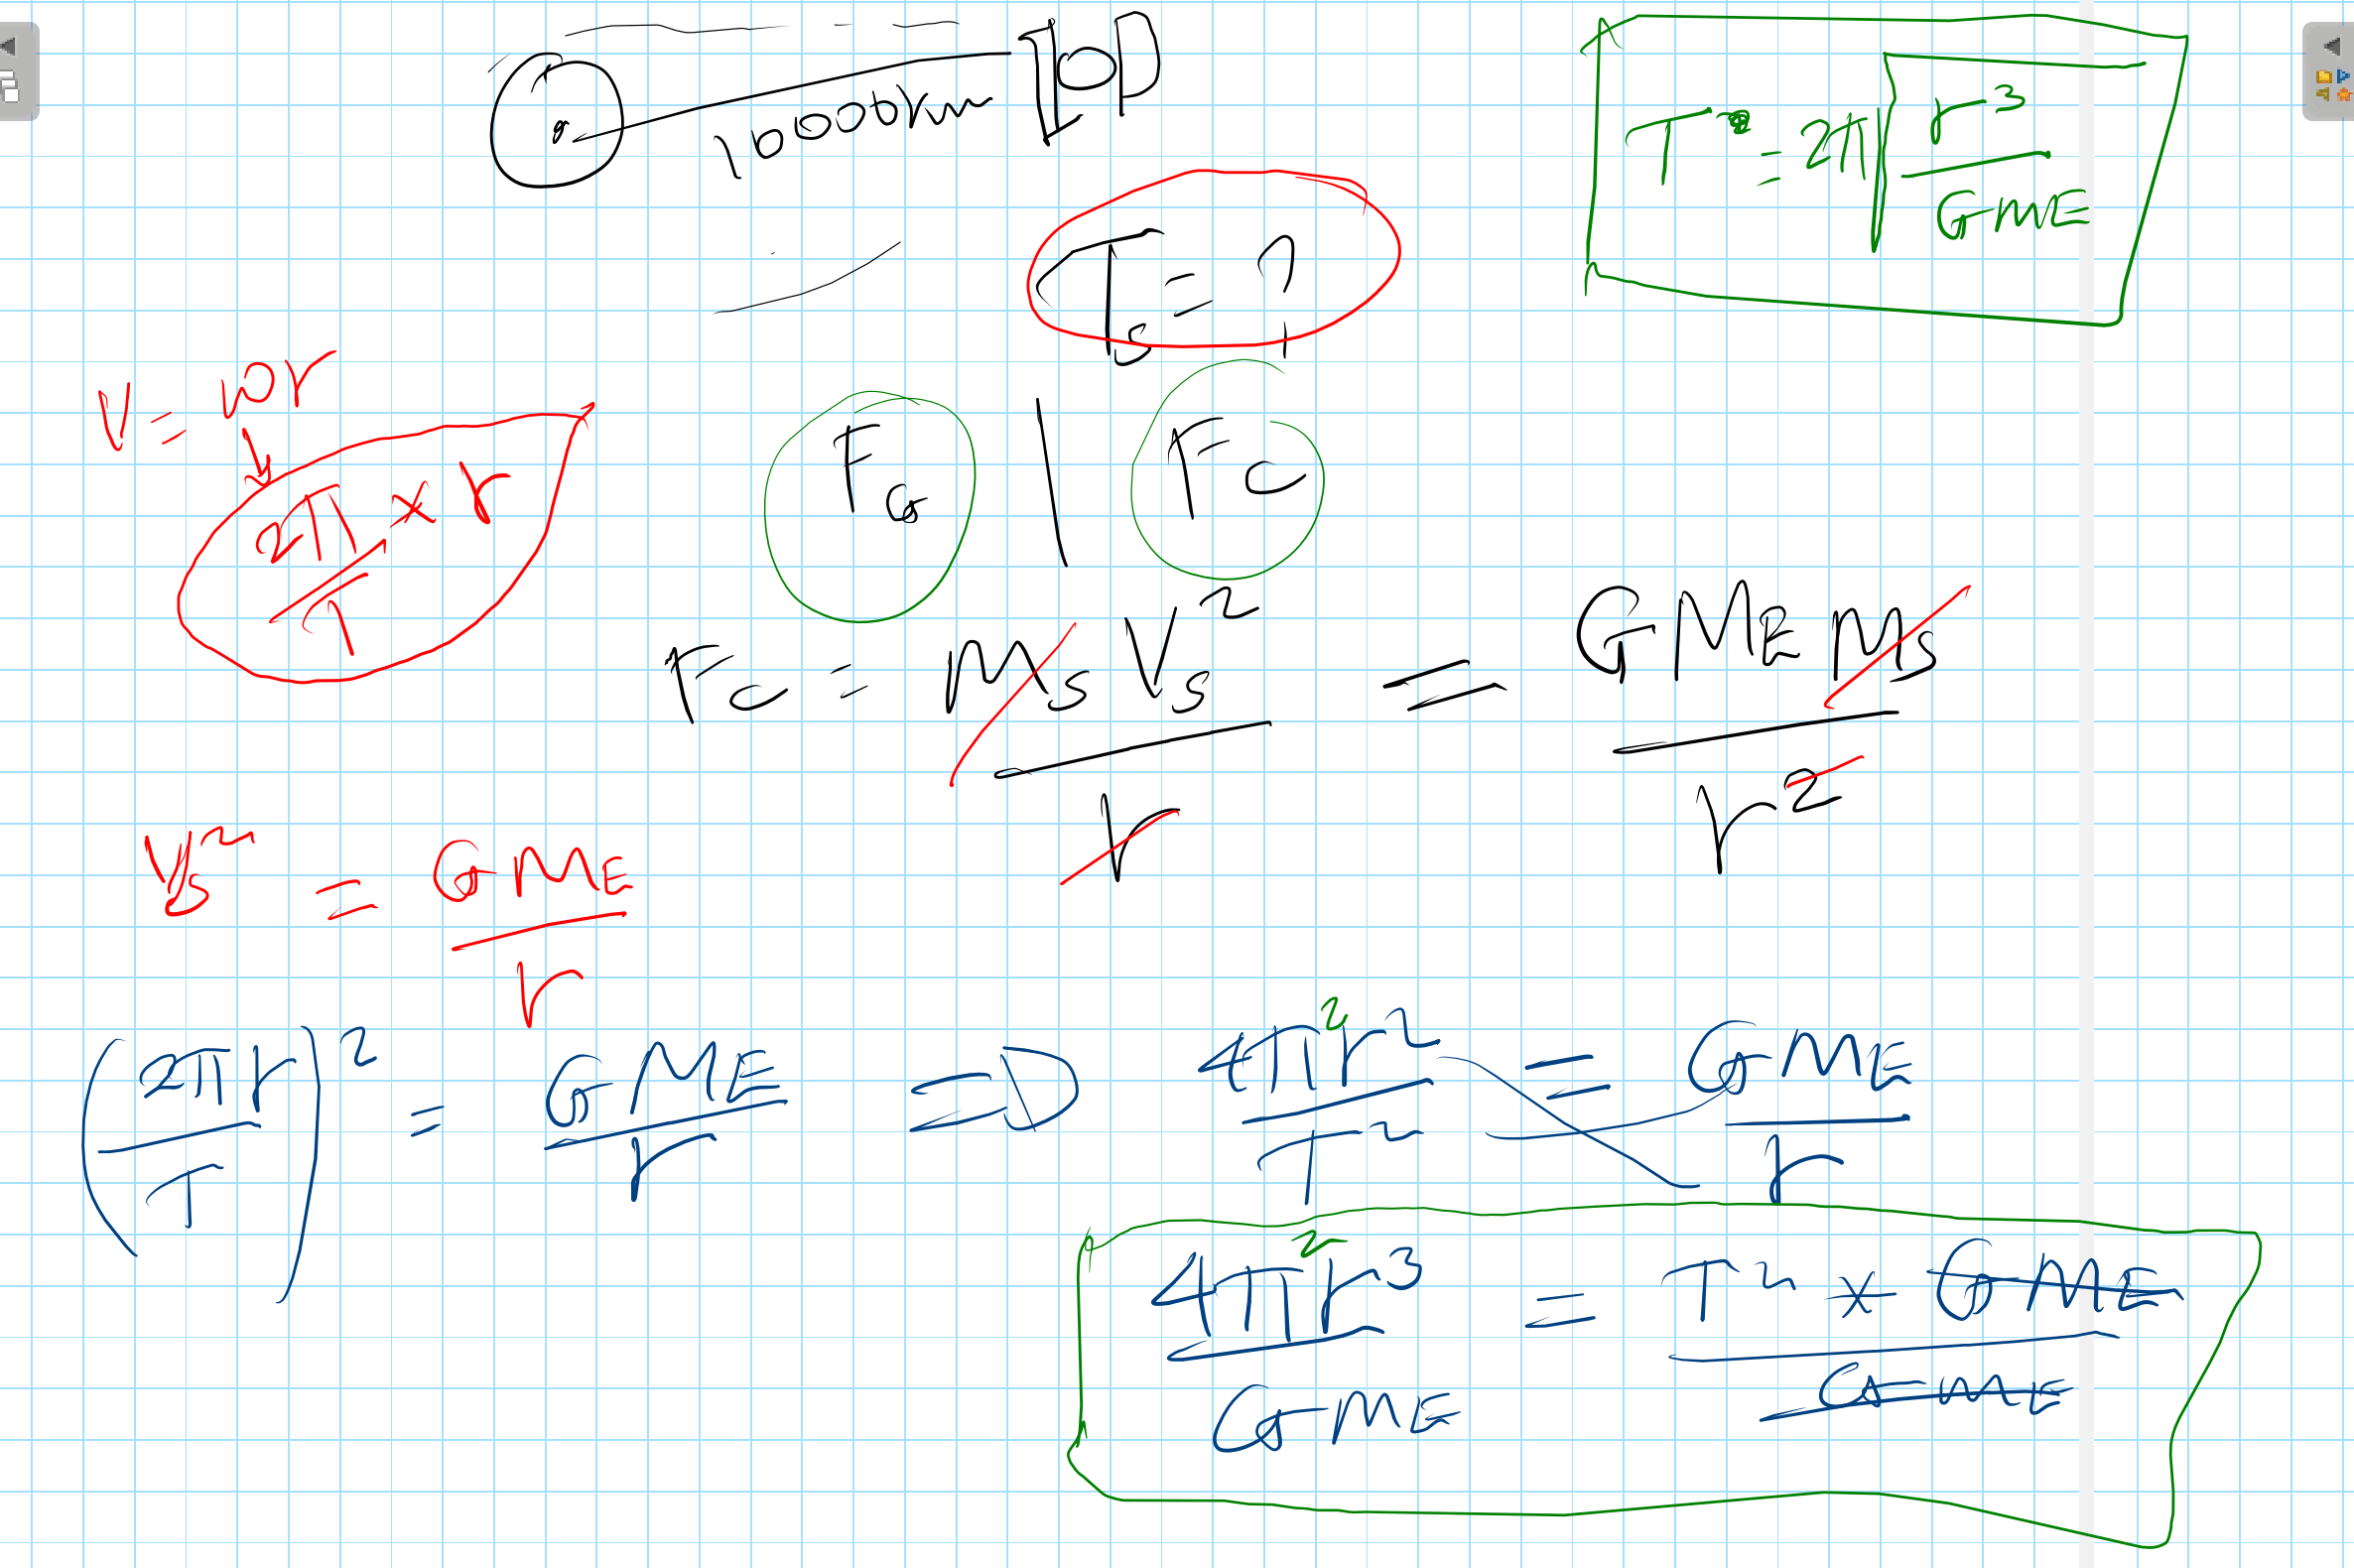 10000km
T = 2π √(r³ / GME)
Ts = ?
V = ωr
2π/T × r
FG | Fc
Fc = Ms Vs² / r = G ME Ms / r²
Vs² = GME / r
(2πr / T)² = GME / r ⇒ 4π²r² / T² = GME / r
4π²r³ / GME = T² * GME / GME